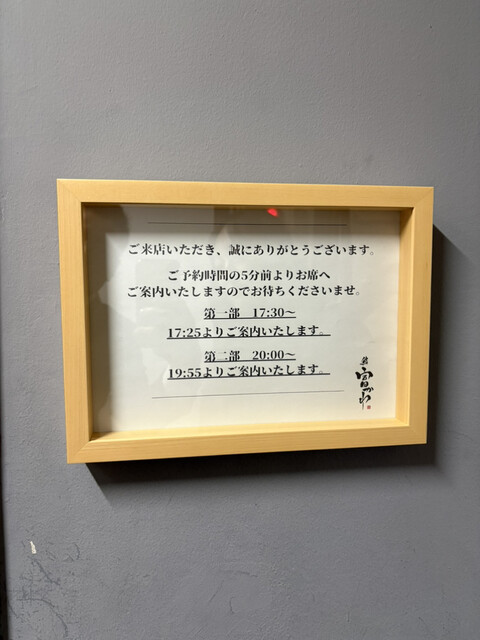 ご来店いただき、誠にありがとうございます。
ご予約時間の5分前よりお席へ
ご案内いたしますのでお待ちくださいませ。
第一部 17:30～
17:25よりご案内いたします。
第二部 20:00～
19:55よりご案内いたします。
鮨
富がわ